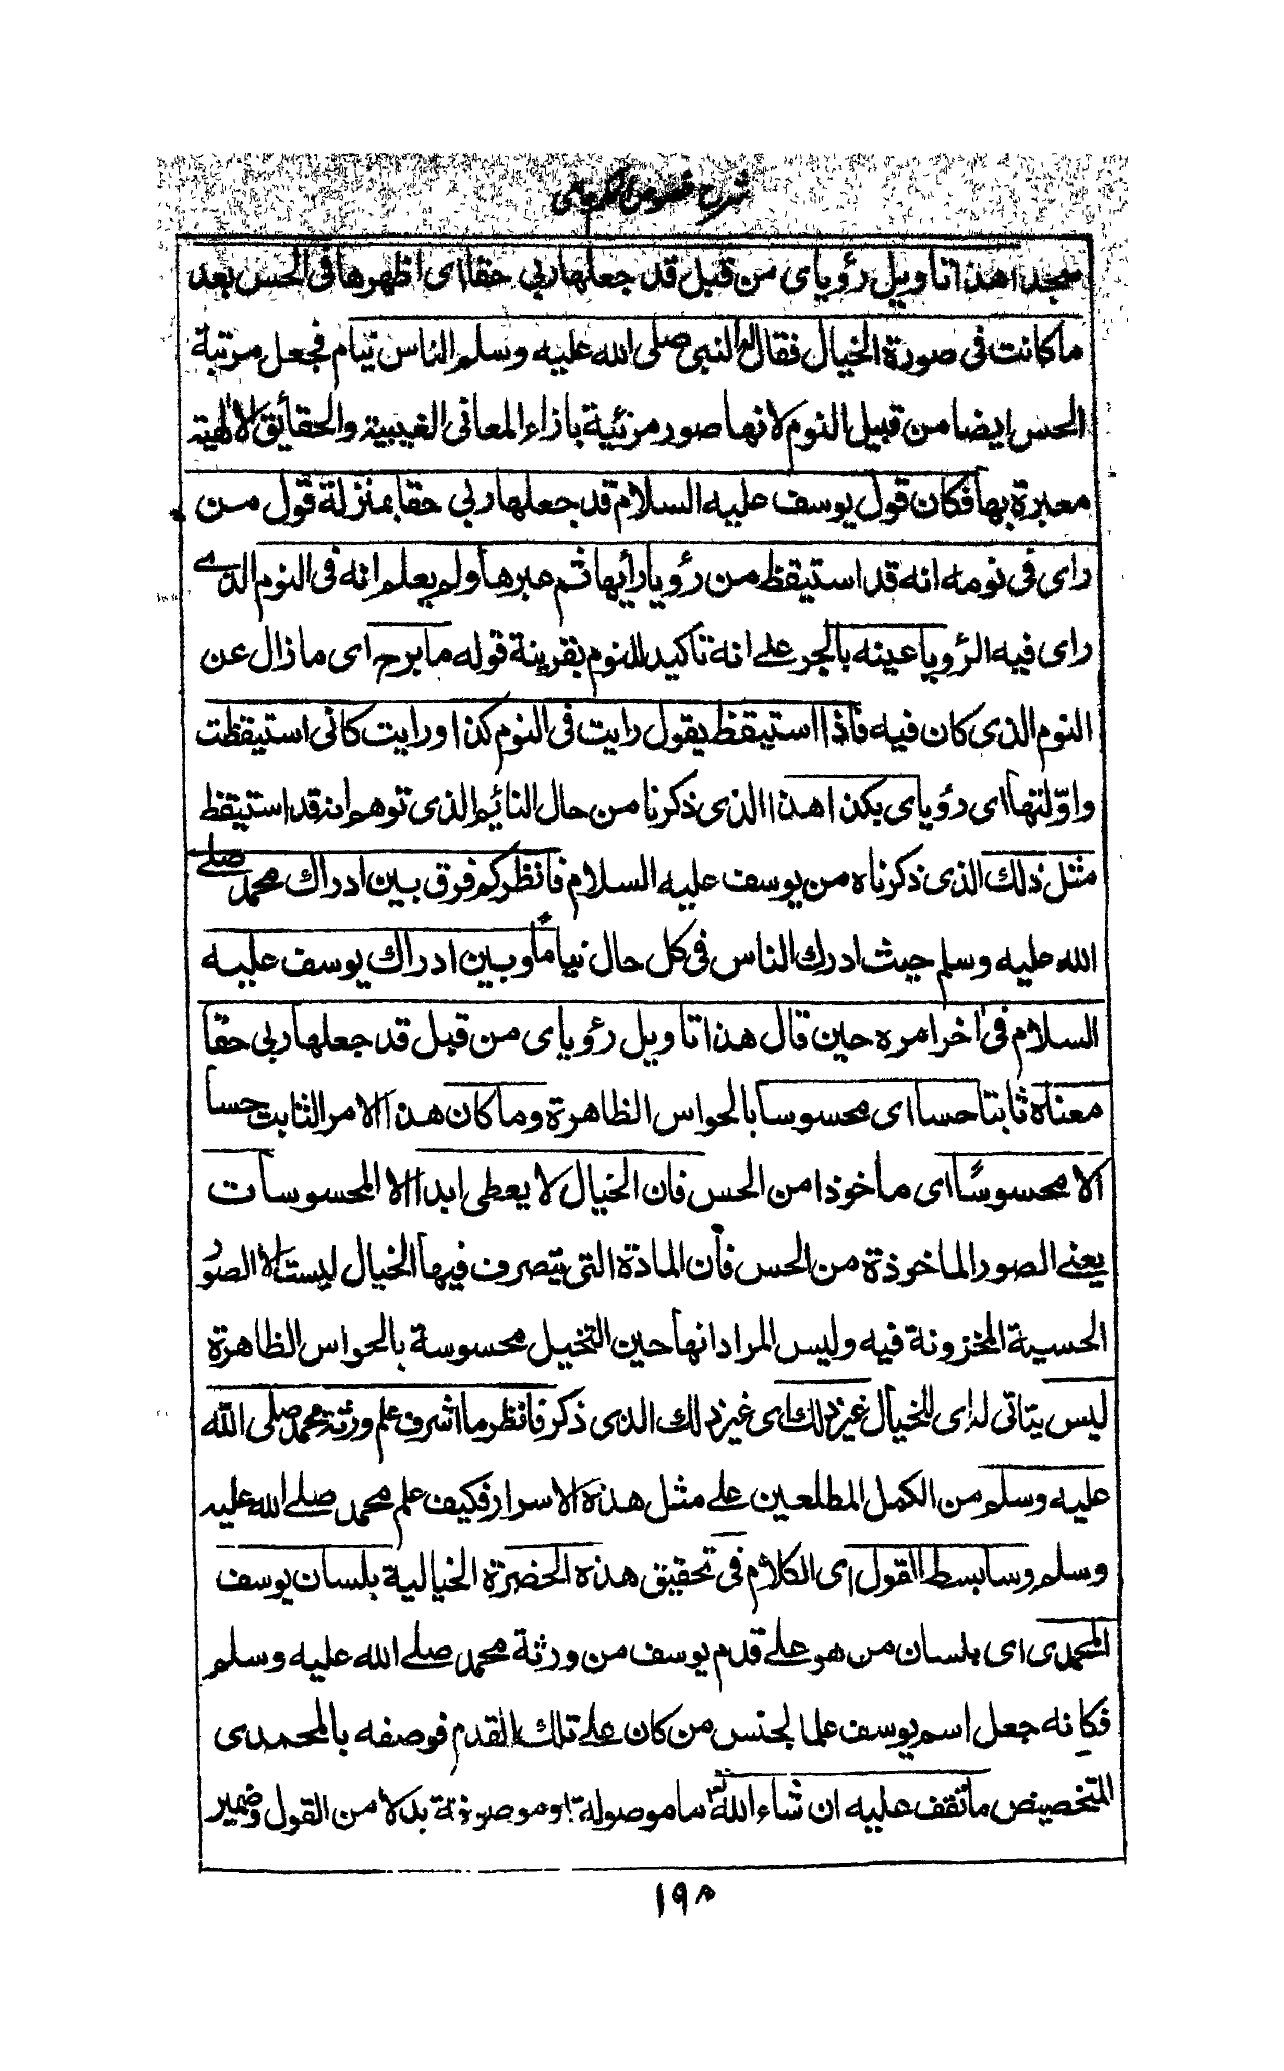 شرح فصوص الحكم جامی
سجدا هذا تاويل رؤياى من قبل قد جعلها ربى حقا اى اظهرها فى الحس بعد
ما كانت فى صورة الخيال فقال له النبى صلى الله عليه وسلم الناس نيام فجعل مرتبة
الحس ايضا من قبيل النوم لانها صور مرئية بازاء المعانى الغيبية والحقائق الالهية
معبرة بها فكان قول يوسف عليه السلام قد جعلها ربى حقا بمنزلة قول من
راى فى نومه انه قد استيقظ من رؤيا رأيها ثم عبرها ولم يعلم انه فى النوم الذى
راى فيه الرؤيا عينه بالجر على انه تاكيد للنوم بقرينة قوله ما برح اى ما زال عن
النوم الذى كان فيه فاذا استيقظ يقول رايت فى النوم كذا ورايت كانى استيقظت
واولتها اى رؤياى بكذا هذا الذى ذكرنا من حال النائم الذى توهم انه قد استيقظ
مثل ذلك الذى ذكرناه من يوسف عليه السلام فانظر كم فرق بين ادراك محمد صلى
الله عليه وسلم حيث ادرك الناس فى كل حال نياماً وبين ادراك يوسف عليه
السلام فى اخر امره حين قال هذا تاويل رؤياى من قبل قد جعلها ربى حقا
معناه ثابتا حسا اى محسوسا بالحواس الظاهرة وما كان هذا الامر الثابت حسا
الا محسوسًا اى ماخوذا من الحس فان الخيال لا يعطى ابدا الا المحسوسات
يعنى الصور الماخوذة من الحس فان المادة التى يتصرف فيها الخيال ليست الا الصور
الحسية المخزونة فيه وليس المراد انها حين التخيل محسوسة بالحواس الظاهرة
ليس يتاتى له اى للخيال غير ذلك اى غير ذلك الذى ذكر فانظر ما اشرف علم ورثة محمد صلى الله
عليه وسلم من الكمل المطلعين على مثل هذه الاسرار فكيف علم محمد صلى الله عليه
وسلم وسابسط القول اى الكلام فى تحقيق هذه الحضرة الخيالية بلسان يوسف
المحمدى اى بلسان من هو على قدم يوسف من ورثة محمد صلى الله عليه وسلم
فكانه جعل اسم يوسف علما لجنس من كان على تلك القدم فوصفه بالمحمدى
للتخصيص ما تقف عليه ان شاء الله ما موصولة او موصوفة بدلا من القول وضمير
١٩٨